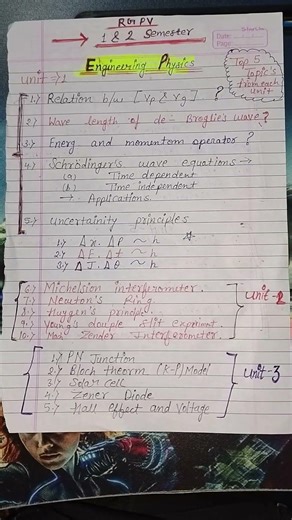 RGPV
→ 1 & 2 Semester
Date
Page
Engineering Physics
Top 5
topic's
from each
unit
Unit ⇒ 1
1.) Relation b/w [Vp & Vg] ?
2.) Wave length of de-Broglie's wave?
3.) Energ and momentom operator?
4.) Schrödinger's wave equations →
(a) Time dependent
(b) Time independent
→ Applications.
5.) uncertainity principles
1.) Δx. ΔP ~ h
2.) ΔE. Δt ~ h
3.) ΔJ. Δθ ~ h
6.) Michelsion interferometer.
7.) Newton's Ring.
8.) Huygen's principle
9.) Young's double slit expriment.
10.) Mach Zender Interferometer.
Unit-2
1.) PN Junction
2.) Bloch theorm (K-P) Model
3.) Solar cell
4.) Zener Diode
5.) Hall effect and Voltage
Unit-3